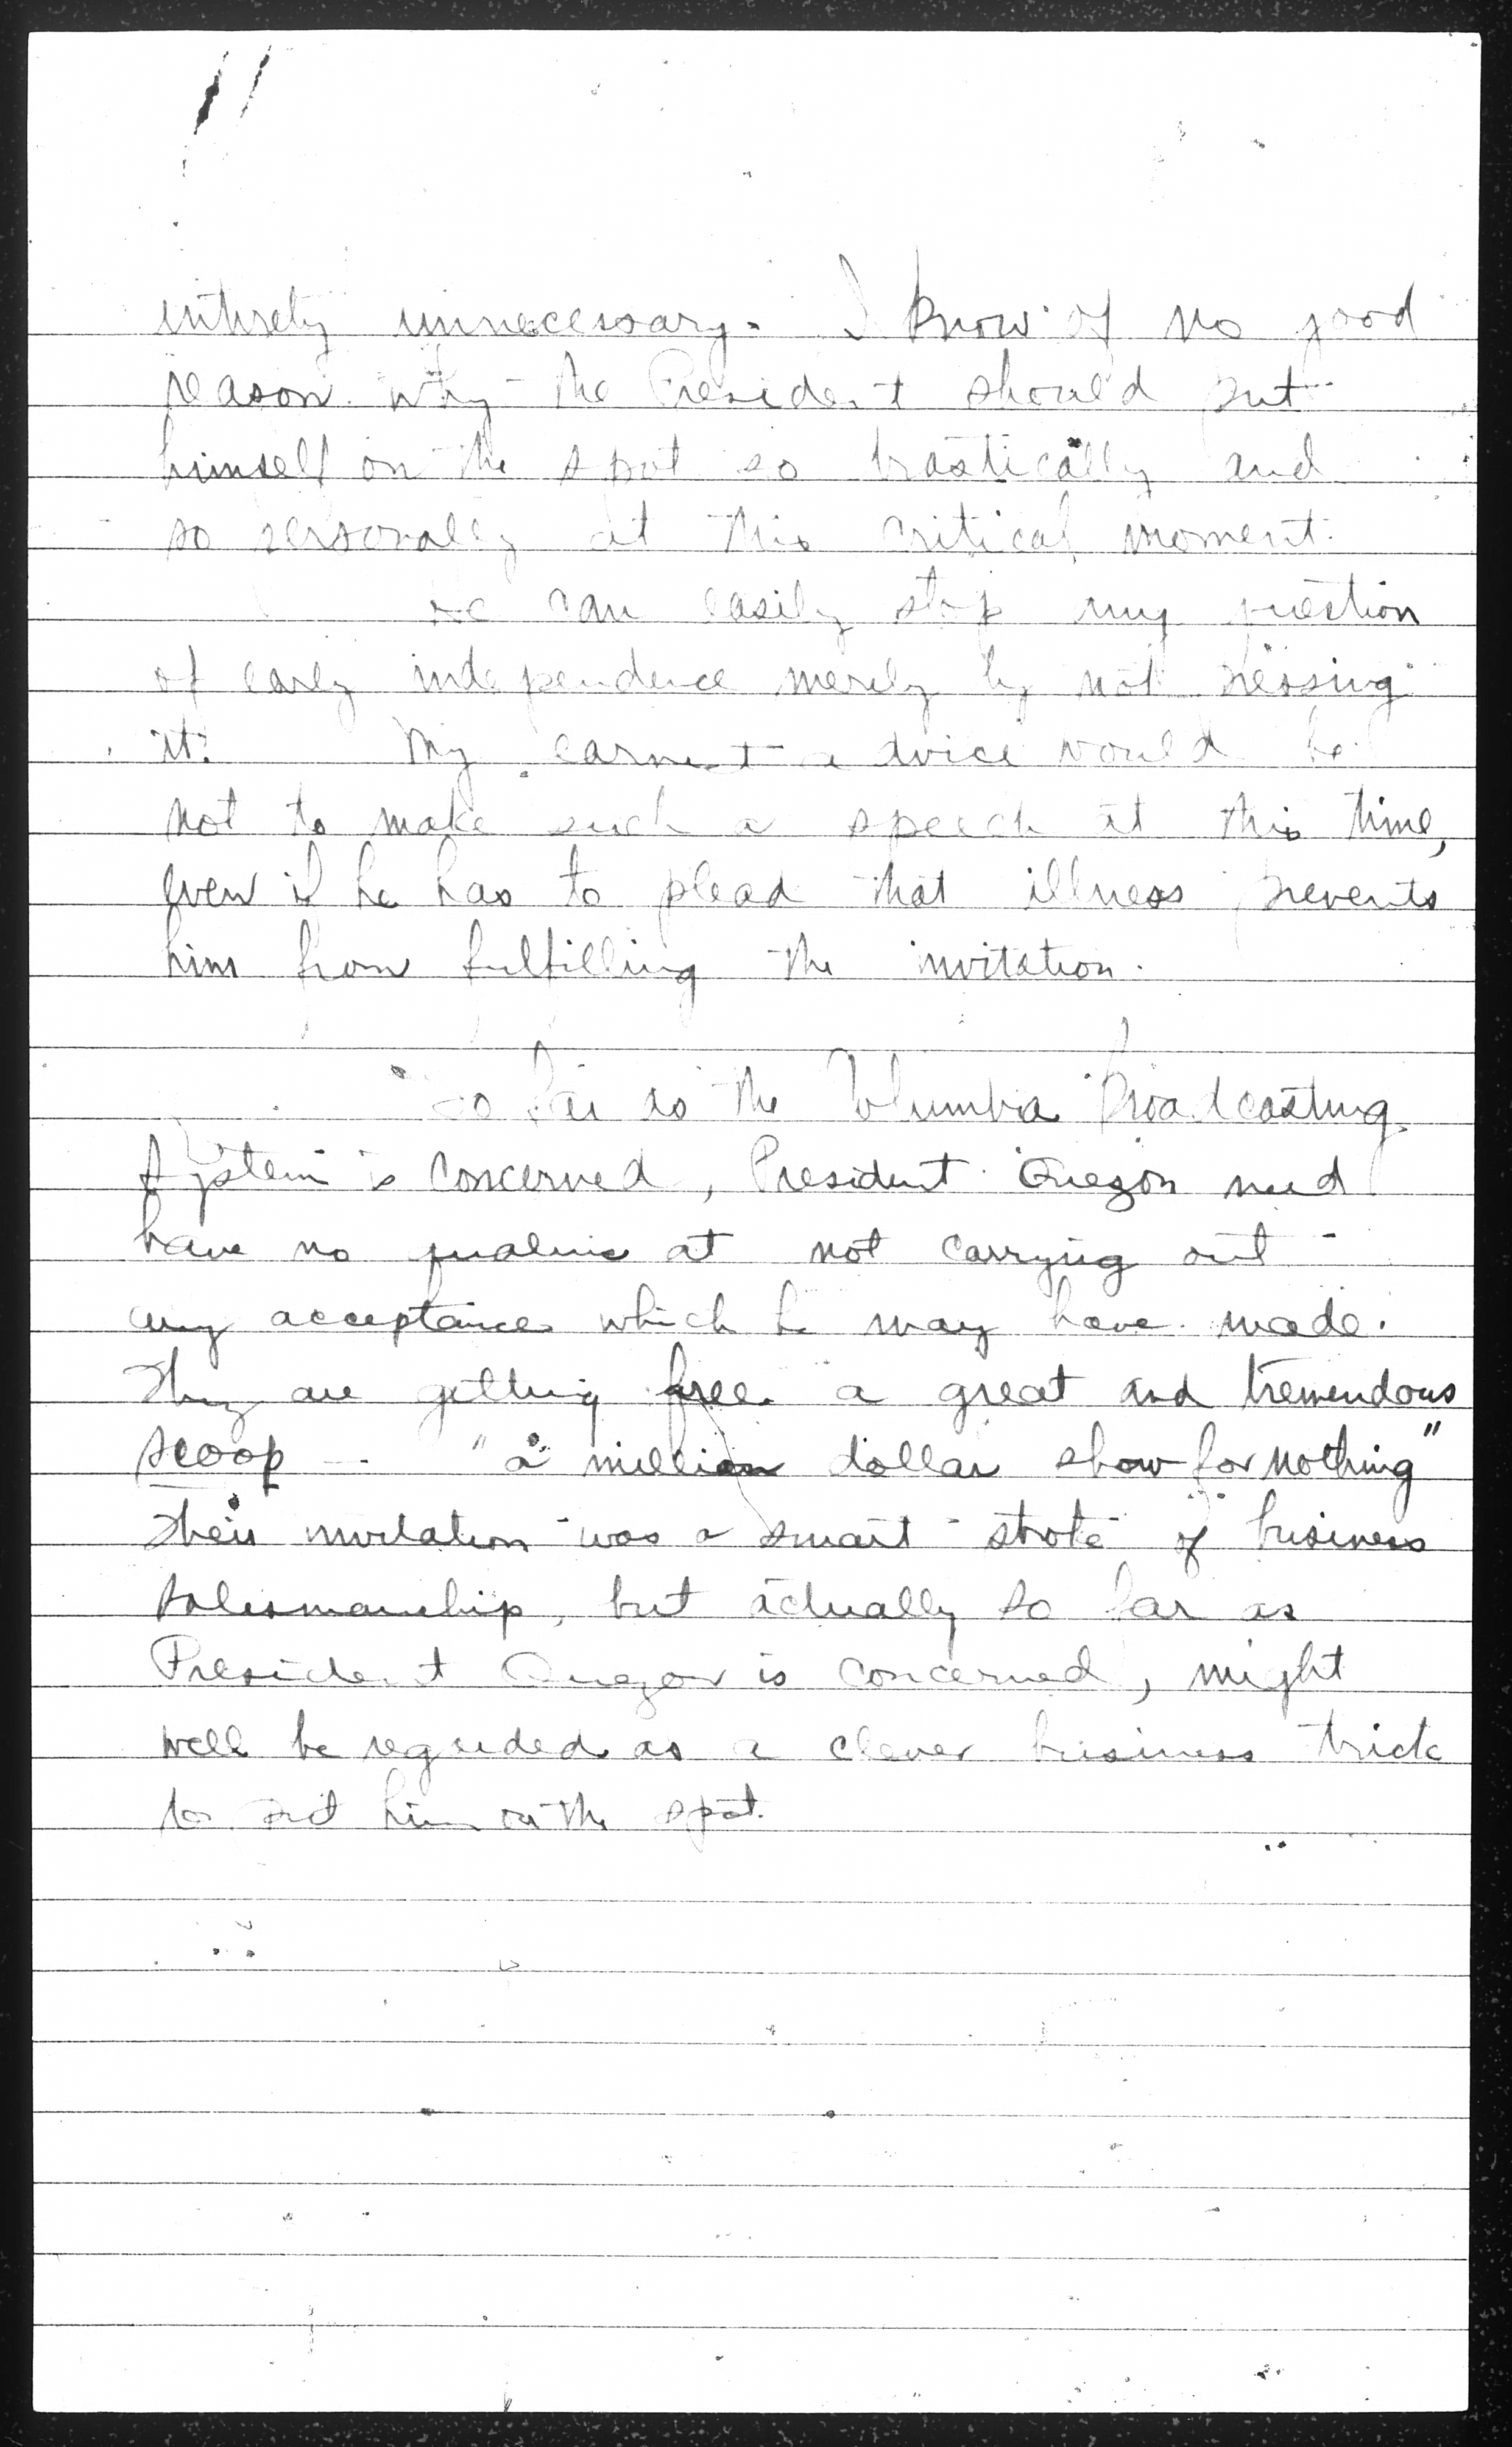 entirely unnecessary. I know of no good
reason why the President should put
himself on the spot so drastically and
so personally at this critical moment.
We can easily stop any question
of early independence merely by not pressing
it. My earnest advice would be
not to make such a speech at this time,
even if he has to plead that illness prevents
him from fulfilling the invitation.
So far as the Columbia Broadcasting
System is concerned, President Quezon need
have no qualms at not carrying out
any acceptance which he may have made.
They are getting free a great and tremendous
scoop - "a million dollar show for nothing"
Their invitation was a smart stroke of business
salesmanship, but actually so far as
President Quezon is concerned, might
well be regarded as a clever business trick
to put him on the spot.